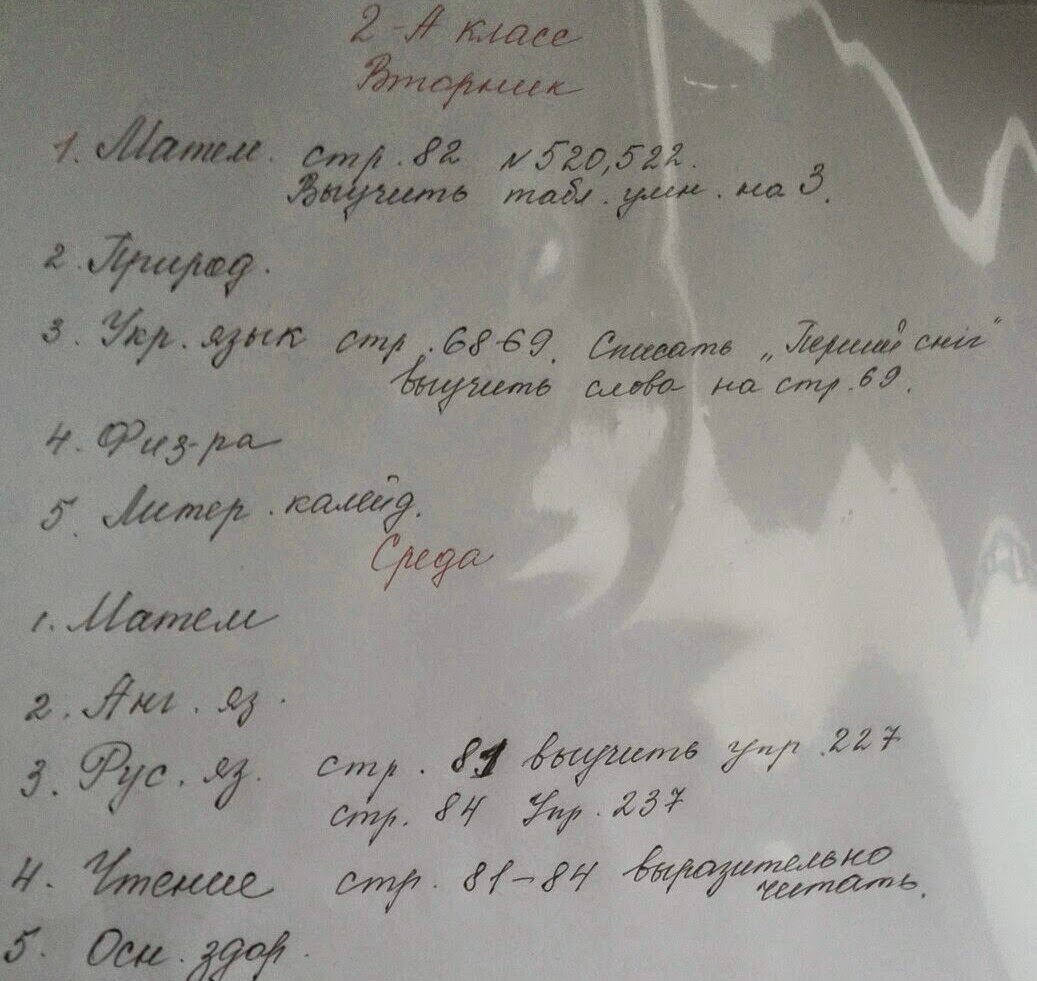 2-А класс
Вторник
1. Матем. стр. 82 №520,522.
Выучить табл. умн. на 3.
2. Природ.
3. Укр. язык стр. 68-69. Списать „Перший сніг"
выучить слова на стр. 69.
4. Физ-ра
5. Литер. калейд.
Среда
1. Матем
2. Анг. яз.
3. Рус. яз. стр. 81 выучить упр. 227
стр. 84 Упр. 237
4. Чтение стр. 81-84 выразительно
читать.
5. Осн. здор.